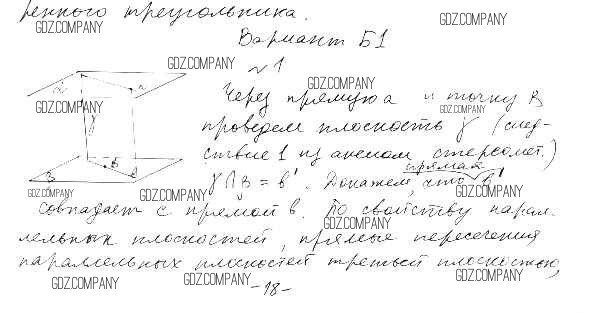 ренного треугольника.
GDZ.COMPANY GDZ.COMPANY
Вариант Б1
GDZ.COMPANY
№1
GDZ.COMPANY
Через прямую a и точку B
GDZ.COMPANY GDZ.COMPANY
проведем плоскость γ (след-
ствие 1 из аксиом стереомет.)
прямая
γ ∩ β = b'. Докажем, что b'
GDZ.COMPANY GDZ.COMPANY GDZ.COMPANY
совпадает с прямой b. По свойству парал.
GDZ.COMPANY
лельных плоскостей, прямые пересечения
параллельных плоскостей третьей плоскостью,
GDZ.COMPANY GDZ.COMPANY GDZ.COMPANY
-18-